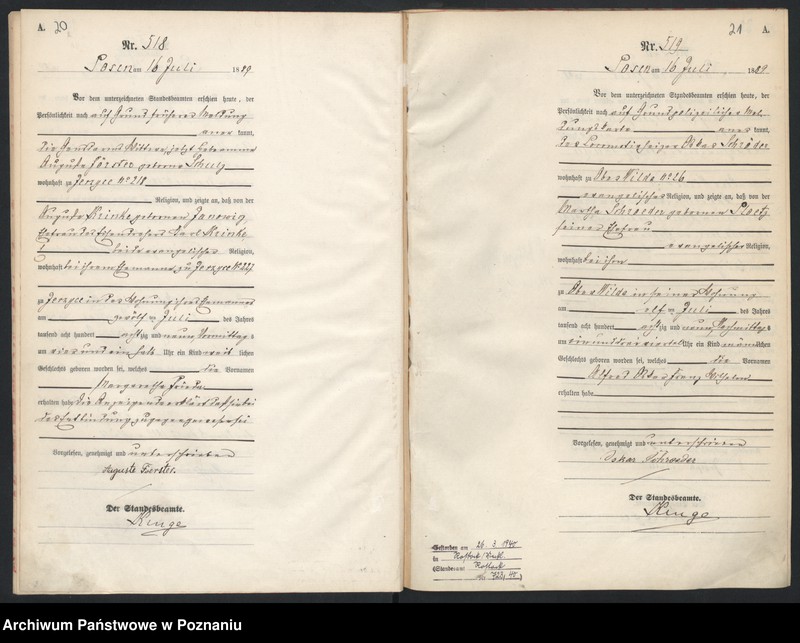 A. 20
Nr. 518
Posen am 16 Juli 1889
Vor dem unterzeichneten Standesbeamten erschien heute, der
Persönlichkeit nach auf Grund früherer Meldung
aner kannt,
Auguste Förster geborene Schulz
wohnhaft zu Jerzyce No 218
Religion, und zeigte an, daß von der
Auguste Krinke geborenen Janowig
Ehefrau des Eisendrehers Karl Krinke
beide evangelischer Religion,
wohnhaft bei ihrem Ehemanne zu Jerzyce
zu Jerzyce in der Wohnung ihres Ehemannes
am zwölf ten Juli des Jahres
tausend acht hundert acht zig und neun Vormittags
um vier und ein halb Uhr ein Kind weib lichen
Geschlechts geboren worden sei, welches die Vornamen
Margarethe Frieda
erhalten habe. Die Anzeigende erklärt daß sie bei
der Entbindung zugegen gewesen sei
Vorgelesen, genehmigt und unterschrieben
Auguste Förster.
Der Standesbeamte.
Kinge
21 A.
Nr. 519
Posen am 16 Juli 1889
Vor dem unterzeichneten Standesbeamten erschien heute, der
Persönlichkeit nach auf Grund polizeilicher Mel-
dungskarte aner kannt,
der Locomotivheizer Oskar Schröder
wohnhaft zu Ober Wilda No 26
evangelischer Religion, und zeigte an, daß von der
Martha Schroeder geborenen Ploetz
seiner Ehefrau
evangelischer Religion,
wohnhaft bei ihm
zu Ober Wilda in seiner Wohnung
am elf ten Juli des Jahres
tausend acht hundert acht zig und neun Nachmittags
um ein und drei viertel Uhr ein Kind männ lichen
Geschlechts geboren worden sei, welches die Vornamen
Alfred Oskar Franz Wilhelm
erhalten habe
Vorgelesen, genehmigt und unterschrieben
Oskar Schroeder
Der Standesbeamte.
Kinge
Gestorben am 26. 3. 1940
in Rostock
(Standesamt Rostock
Archiwum Państwowe w Poznaniu